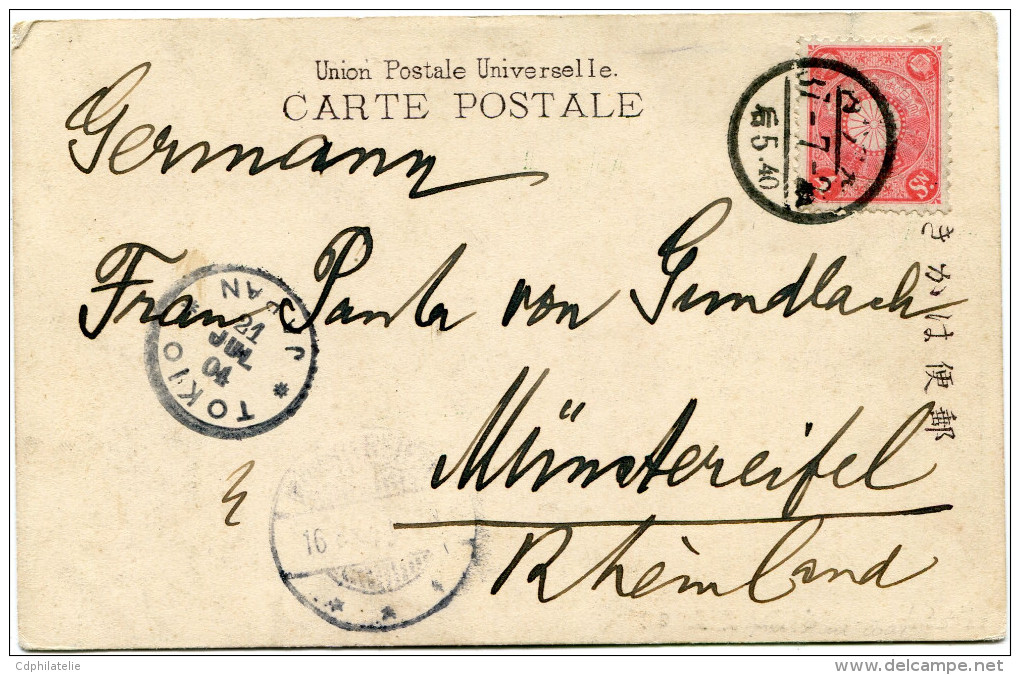 Union Postale Universelle.
CARTE POSTALE
Germany
Frau Paula von Gundlach
Münstereifel
Rheinland
きかは便郵
TOKIO
JAPAN
21
04
5.40
16
Cdphilatelie
delcampe.net